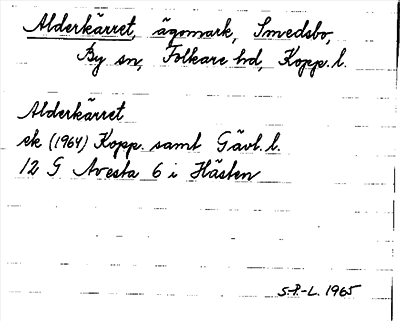 Alderkärret, ägomark, Smedsbo,
By sn, Folkare hd, Kopp. l.
Alderkärret
ek (1964) Kopp. samt Gävl. l.
12 G Avesta 6 i Hästen
S.P.-L. 1965